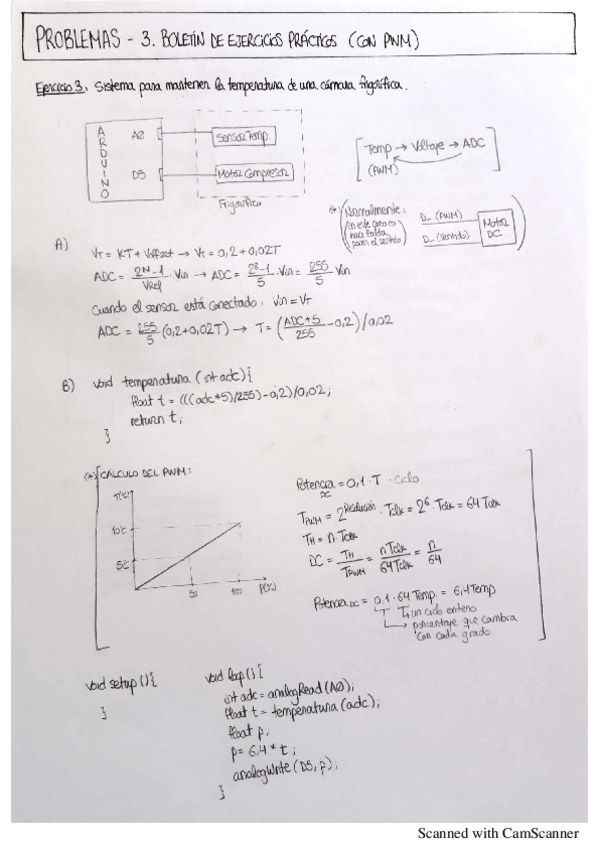 PROBLEMAS - 3. BOLETÍN DE EJERCICIOS PRÁCTICOS (CON PWM)
Ejercicio 3. Sistema para mantener la temperatura de una cámara frigorífica.
ARDUINO
A0
D5
Sensor Temp.
Motor Compresor
Frigorífico
Temp → Voltaje → ADC
(PWM)
(*) Normalmente:
D... (PWM)
D... (sentido)
Motor DC
A)
VT = KT + Voffset → VT = 0,2 + 0,02T
ADC = 2^N-1/Vref · Vin → ADC = 2^8-1/5 · Vin = 255/5 Vin
Cuando el sensor está conectado, Vin = VT
ADC = 255/5 (0,2+0,02T) → T = (ADC*5/255 - 0,2)/0,02
B) void temperatura (int adc){
float t = (((adc*5)/255)-0,2)/0,02;
return t;
}
(*) CÁLCULO DEL PWM:
T(ºC)
10ºC
5ºC
50
100
P(%)
Potencia = 0,1 · T · ciclo
TPWM = 2^Resolución · Tclk = 2^6 · Tclk = 64 Tclk
TH = n · Tclk
DC = TH/TPWM = nTclk/64Tclk = n/64
PotenciaDC = 0,1 · 64 Temp. = 6,4 Temp
un ciclo entero
porcentaje que cambia
con cada grado
void setup(){
}
void loop(){
int adc = analogRead(A0);
float t = temperatura(adc);
float p;
p = 6,4 * t;
analogWrite(D5, p);
}
Scanned with CamScanner